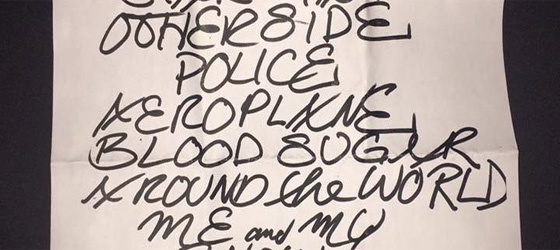 OTHERSIDE
POLICE
AEROPLANE
BLOOD SUGAR
AROUND the WORLD
ME and MY